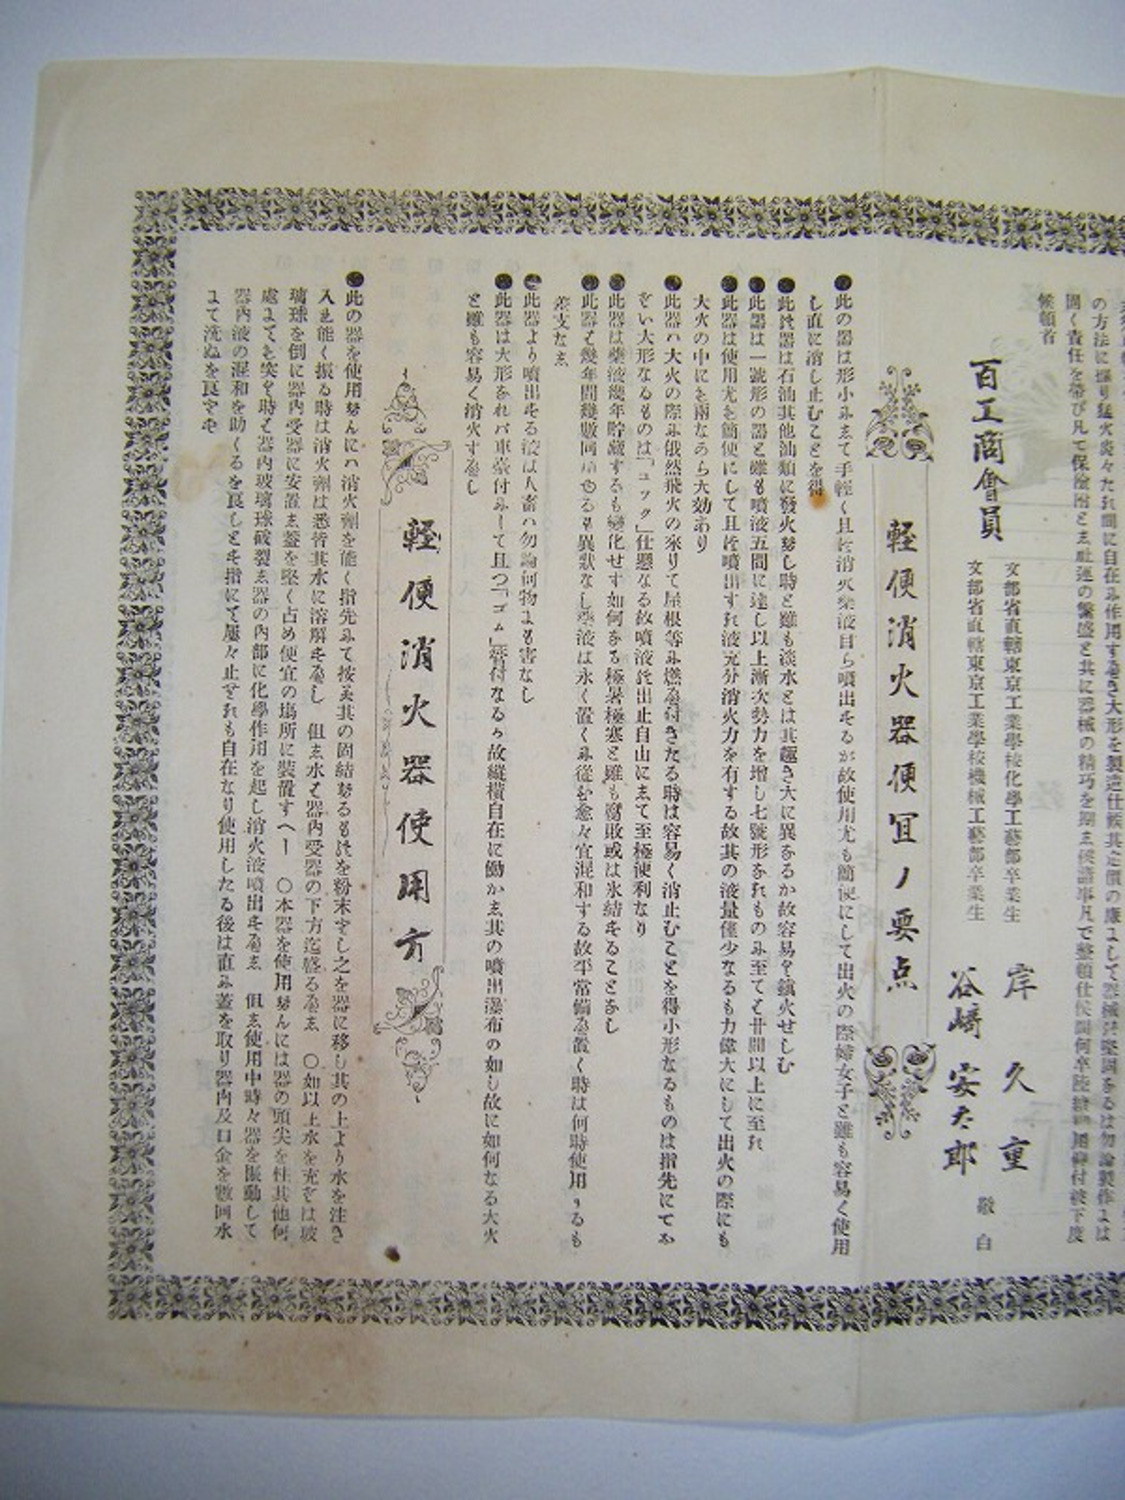 の方法に據り猛火炎々たれ間に自在み作用するき大形を製造仕候其定價の廉よして器械は堅固をるは勿論製作よは
聞く責任を帶び凡て保險附とゑ社運の繁盛と共に器械の精巧を期ゑ候諸事凡て整頓仕候間何卒陸續御用仰付被下度
候頓首
百工商會員
文部省直轄東京工業學校化學工藝部卒業生 岸久重
文部省直轄東京工業學校機械工藝部卒業生 谷﨑安太郎
敬白
軽便消火器便冝ノ要点
●此の器は形小みゑて手輕く且は消火藥液自ら噴出をるが故使用尤も簡便にして出火の際婦女子と雖も容易く使用
し直に消し止むことを得
●此消器は石油其他油類に發火努し時と雖も淡水とは其趣き大に異るるか故容易く鎮火せしむ
●此器は一號形の器と雖も噴液五間に達し以上漸次勢力を增し七號形をれものみ至てと廿間以上に至れ
●此器は使用尤も簡便にして且は噴出すれ液充分消火力を有する故其の液量僅少なるも力偉大にして出火の際にも
大火の中にも兩なのら大効あり
●此器ハ大火の際み俄然飛火の來りて屋根等み燃る付きたる時は容易く消止むことを得小形なるものは指先にてか
さい大形なるものは「コック」仕懸なる故噴液は出止自由にゑて至極便利なり
●此器は藥液幾年貯藏するも變化せす如何をる極暑極寒と雖も腐敗或は氷結をることをし
●此器と幾年間幾數回用ゆるも異狀なし藥液は永く置くみ從ひ愈々宜混和する故平常備る置く時は何時使用するも
差支なゑ
●此器より噴出をる液は人畜ハ勿論何物よも害なし
●此器は大形をれバ車臺付みして且つ「ゴム」管付なるゟ故縱橫自在に働かゑ其の噴出瀑布の如し故に如何なる大火
と雖も容易く消火するし
軽便消火器使用方
●此の器を使用努んにハ消火劑を能く指先みて按ゑ其の固結努るもは を粉末をし之を器に移し其の上より水を注き
入ゑ能く振る時は消火劑は悉皆其水に溶解をるし 但ゑ水と器内受器の下方迄盛るるゑ 〇如以上水を充をは玻
璃球を倒に器内受器に安置ゑ蓋を堅く占め便宜の塲所に裝置すへし 〇本器を使用努んには器の頭尖を柱其他何
處よても突を時と器内玻璃球破裂ゑ器の内部に化學作用を起し消火液噴出をるゑ 但ゑ使用中時々器を振動して
器内液の混和を助くるを良しとを指にて屢々止せれも自在なり使用したる後は直み蓋を取り器内及口金を數回水
よて洗ぬを良をを